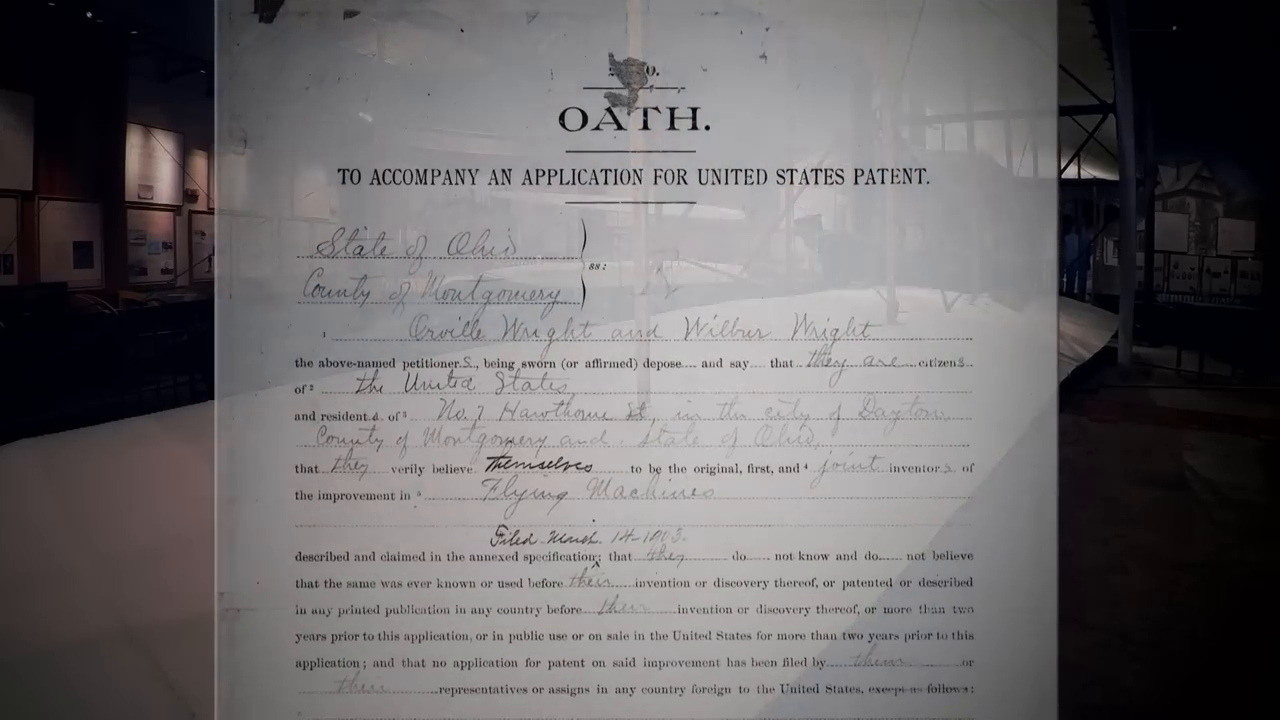 O.
OATH.
TO ACCOMPANY AN APPLICATION FOR UNITED STATES PATENT.
State of Ohio
ss:
County of Montgomery
1 Orville Wright and Wilbur Wright
the above-named petitioners, being sworn (or affirmed) depose.... and say.... that they are citizens
of 2 the United States
and residents of 3 No. 7 Hawthorne St, in the city of Dayton,
County of Montgomery and State of Ohio,
that they verily believe themselves to be the original, first, and 4 joint inventors of
the improvement in 5 Flying Machines
Filed March 14-1903.
described and claimed in the annexed specification; that they do...... not know and do...... not believe
that the same was ever known or used before their invention or discovery thereof, or patented or described
in any printed publication in any country before their invention or discovery thereof, or more than two
years prior to this application, or in public use or on sale in the United States for more than two years prior to this
application; and that no application for patent on said improvement has been filed by them or
their representatives or assigns in any country foreign to the United States, except as follows: